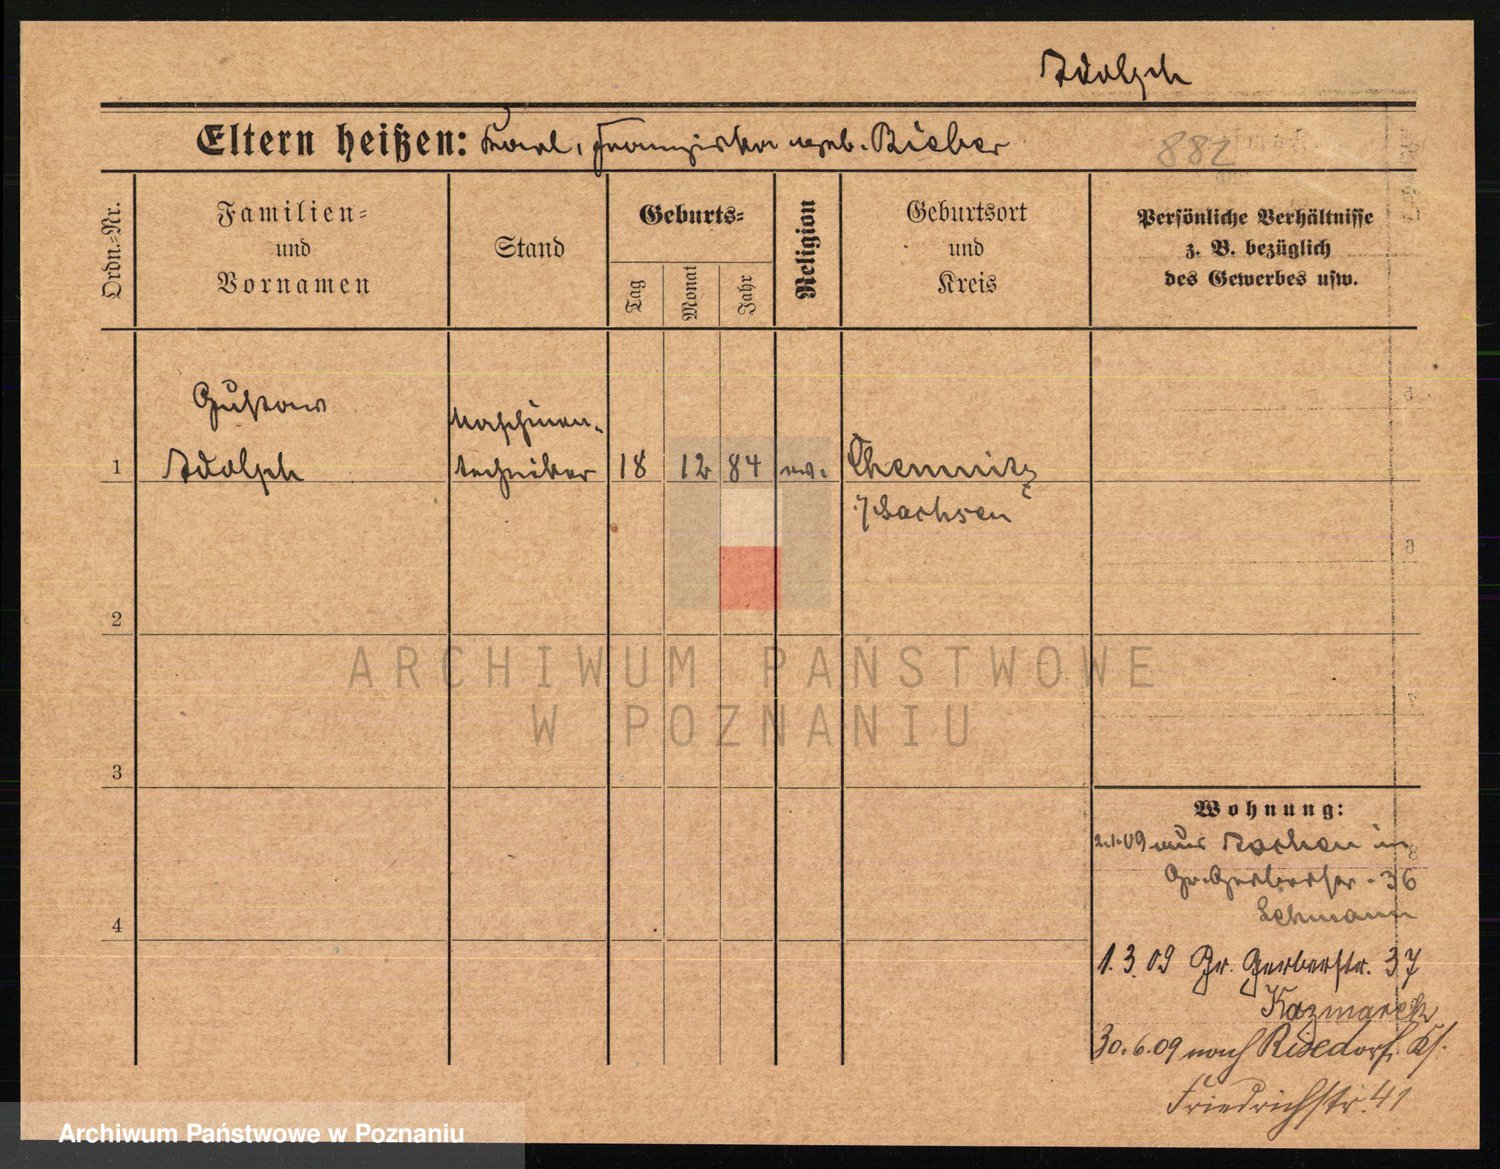 Adolph
Eltern heißen: Karl, Franziska geb. Bieber
882
Ordn.=Nr.
Familien=
und
Vornamen
Stand
Geburts=
Tag
Monat
Jahr
Religion
Geburtsort
und
Kreis
Persönliche Verhältnisse
z. B. bezüglich
des Gewerbes usw.
Gustav
Maschinen-
1 Adolph techniker 18 12 84 ev. Chemnitz
i/Sachsen
2
ARCHIWUM PAŃSTWOWE
W POZNANIU
3
Wohnung:
2.1.09 aus Aachen in
Gr. Gerberstr. 36
Lehmann
4
1.3.09 Gr. Gerberstr. 37
Kazmarek
30.6.09 nach Rixdorf
Friedrichstr. 41
Archiwum Państwowe w Poznaniu